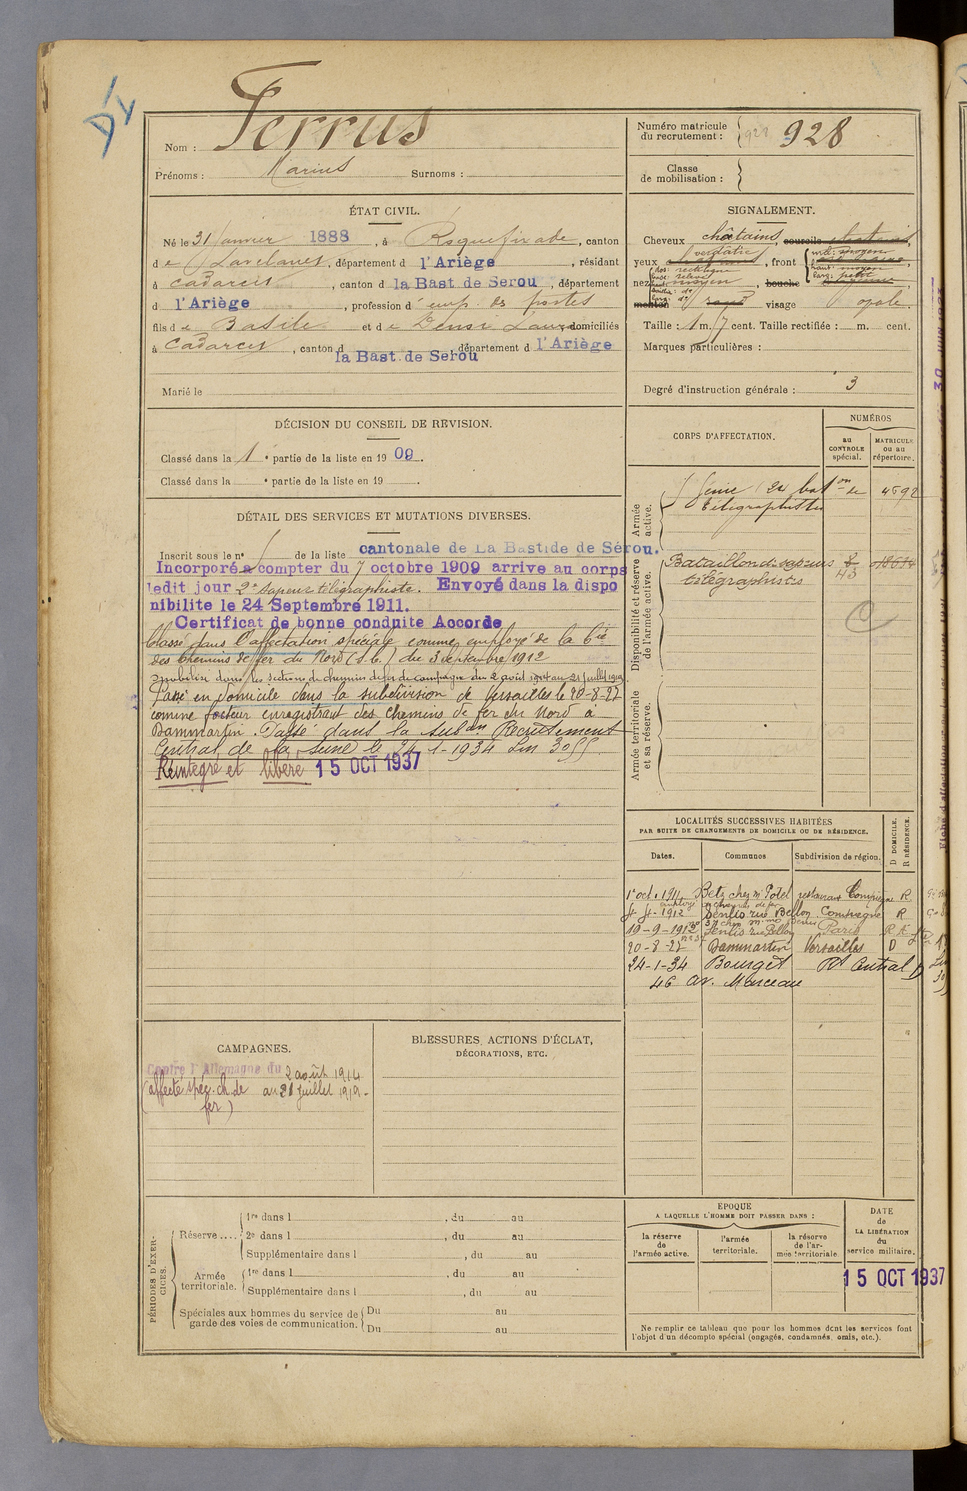 Nom : Ferrus
Prénoms : Marius Surnoms :
Numéro matricule du recrutement : 928 928
Classe de mobilisation :
ÉTAT CIVIL.
Né le 31 Janvier 1888, à Roquefixade, canton
de Lavelanet, département d l'Ariège, résidant
à Cadarcet, canton d la Bast de Serou, département
d l'Ariège, profession d emp. des postes
fils de Basile et de domiciliés
à Cadarcet, canton d la Bast. de Serou, département d l'Ariège
Marié le
SIGNALEMENT.
Cheveux châtains, sourcils châtains,
yeux verdâtre, front
nez moyen, bouche
menton rond visage ovale
Taille : 1 m. 7 cent. Taille rectifiée : m. cent.
Marques particulières :
Degré d'instruction générale : 3
DÉCISION DU CONSEIL DE REVISION.
Classé dans la 1e partie de la liste en 1909.
Classé dans la e partie de la liste en 19 .
DÉTAIL DES SERVICES ET MUTATIONS DIVERSES.
Inscrit sous le n° de la liste cantonale de La Bastide de Sérou.
Incorporé à compter du 7 octobre 1909 arrive au corps
ledit jour 2e Sapeur télégraphiste. Envoyé dans la dispo
nibilite le 24 Septembre 1911.
Certificat de bonne conduite Accordé
Classé dans l'affectation spéciale comme employé de la Cie
des Chemins de fer du Nord (S.C.) du 3 septembre 1912
mobilisé dans les sections de chemin de fer de campagne du 2 août 1914 au 21 juillet 1919
Passé en domicile dans la subdivision de Versailles le 20-8-27
comme facteur enregistrant des Chemins de fer du Nord à
Dammartin. Passé dans la subdon Recrutement
Central de la Seine le 24-1-1934
Réintégré et libéré 15 OCT 1937
CORPS D'AFFECTATION.
NUMÉROS
au CONTROLE spécial.
MATRICULE ou au répertoire.
Armée active.
5 Génie (24 baton de 4592
télégraphistes
Disponibilité et réserve de l'armée active.
Bataillon de sapeurs 8/43
télégraphistes
Armée territoriale et sa réserve.
LOCALITÉS SUCCESSIVES HABITÉES
PAR SUITE DE CHANGEMENTS DE DOMICILE OU DE RÉSIDENCE.
Dates. Communes Subdivision de région. D DOMICILE. R RÉSIDENCE.
1 oct. 1911 Betz chez Mr Potel restaurant Compiègne R
employé ch de fer
4-4-1912 Senlis rue Bellon Compiègne R
19-9-1912 Senlis rue Bellon Paris R
20-8-27 Dammartin Versailles D
24-1-34 Bourget Rt Central D
46 av. Marceau
CAMPAGNES.
Contre l'Allemagne du 2 août 1914
(affecté spéc. ch. de au 21 juillet 1919.
fer)
BLESSURES, ACTIONS D'ÉCLAT,
DÉCORATIONS, ETC.
PÉRIODES D'EXERCICES.
Réserve.... 1re dans l , du au
2e dans l , du au
Supplémentaire dans l , du au
Armée territoriale. 1re dans l , du au
Supplémentaire dans l , du au
Spéciales aux hommes du service de garde des voies de communication. Du au
Du au
ÉPOQUE
A LAQUELLE L'HOMME DOIT PASSER DANS :
la réserve de l'armée active.
l'armée territoriale.
la réserve de l'armée territoriale.
DATE de LA LIBÉRATION du service militaire.
15 OCT 1937
Ne remplir ce tableau que pour les hommes dont les services font
l'objet d'un décompte spécial (engagés, condamnés, omis, etc.).